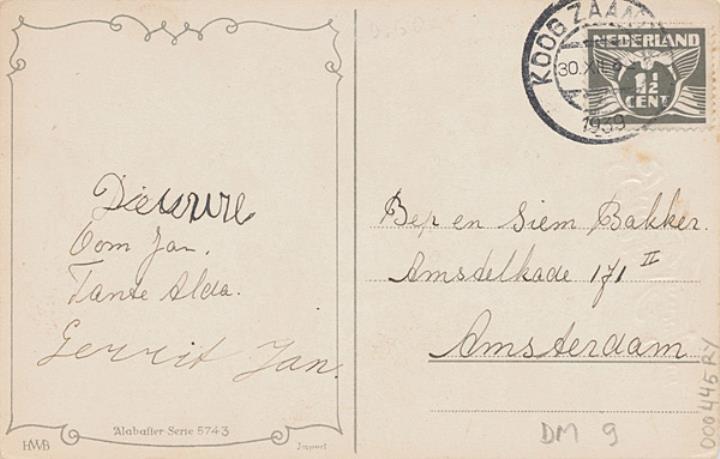 Dieuwre
Oom Jan.
Tante Alda.
Gerrit Jan.
Alabaster Serie 5743
HWB
Import
KOOG ZAAN
30.XII
1939
NEDERLAND
1½
CENT
Bep en Siem Bakker.
Amstelkade 171 II
Amsterdam
DM 9
000445RY